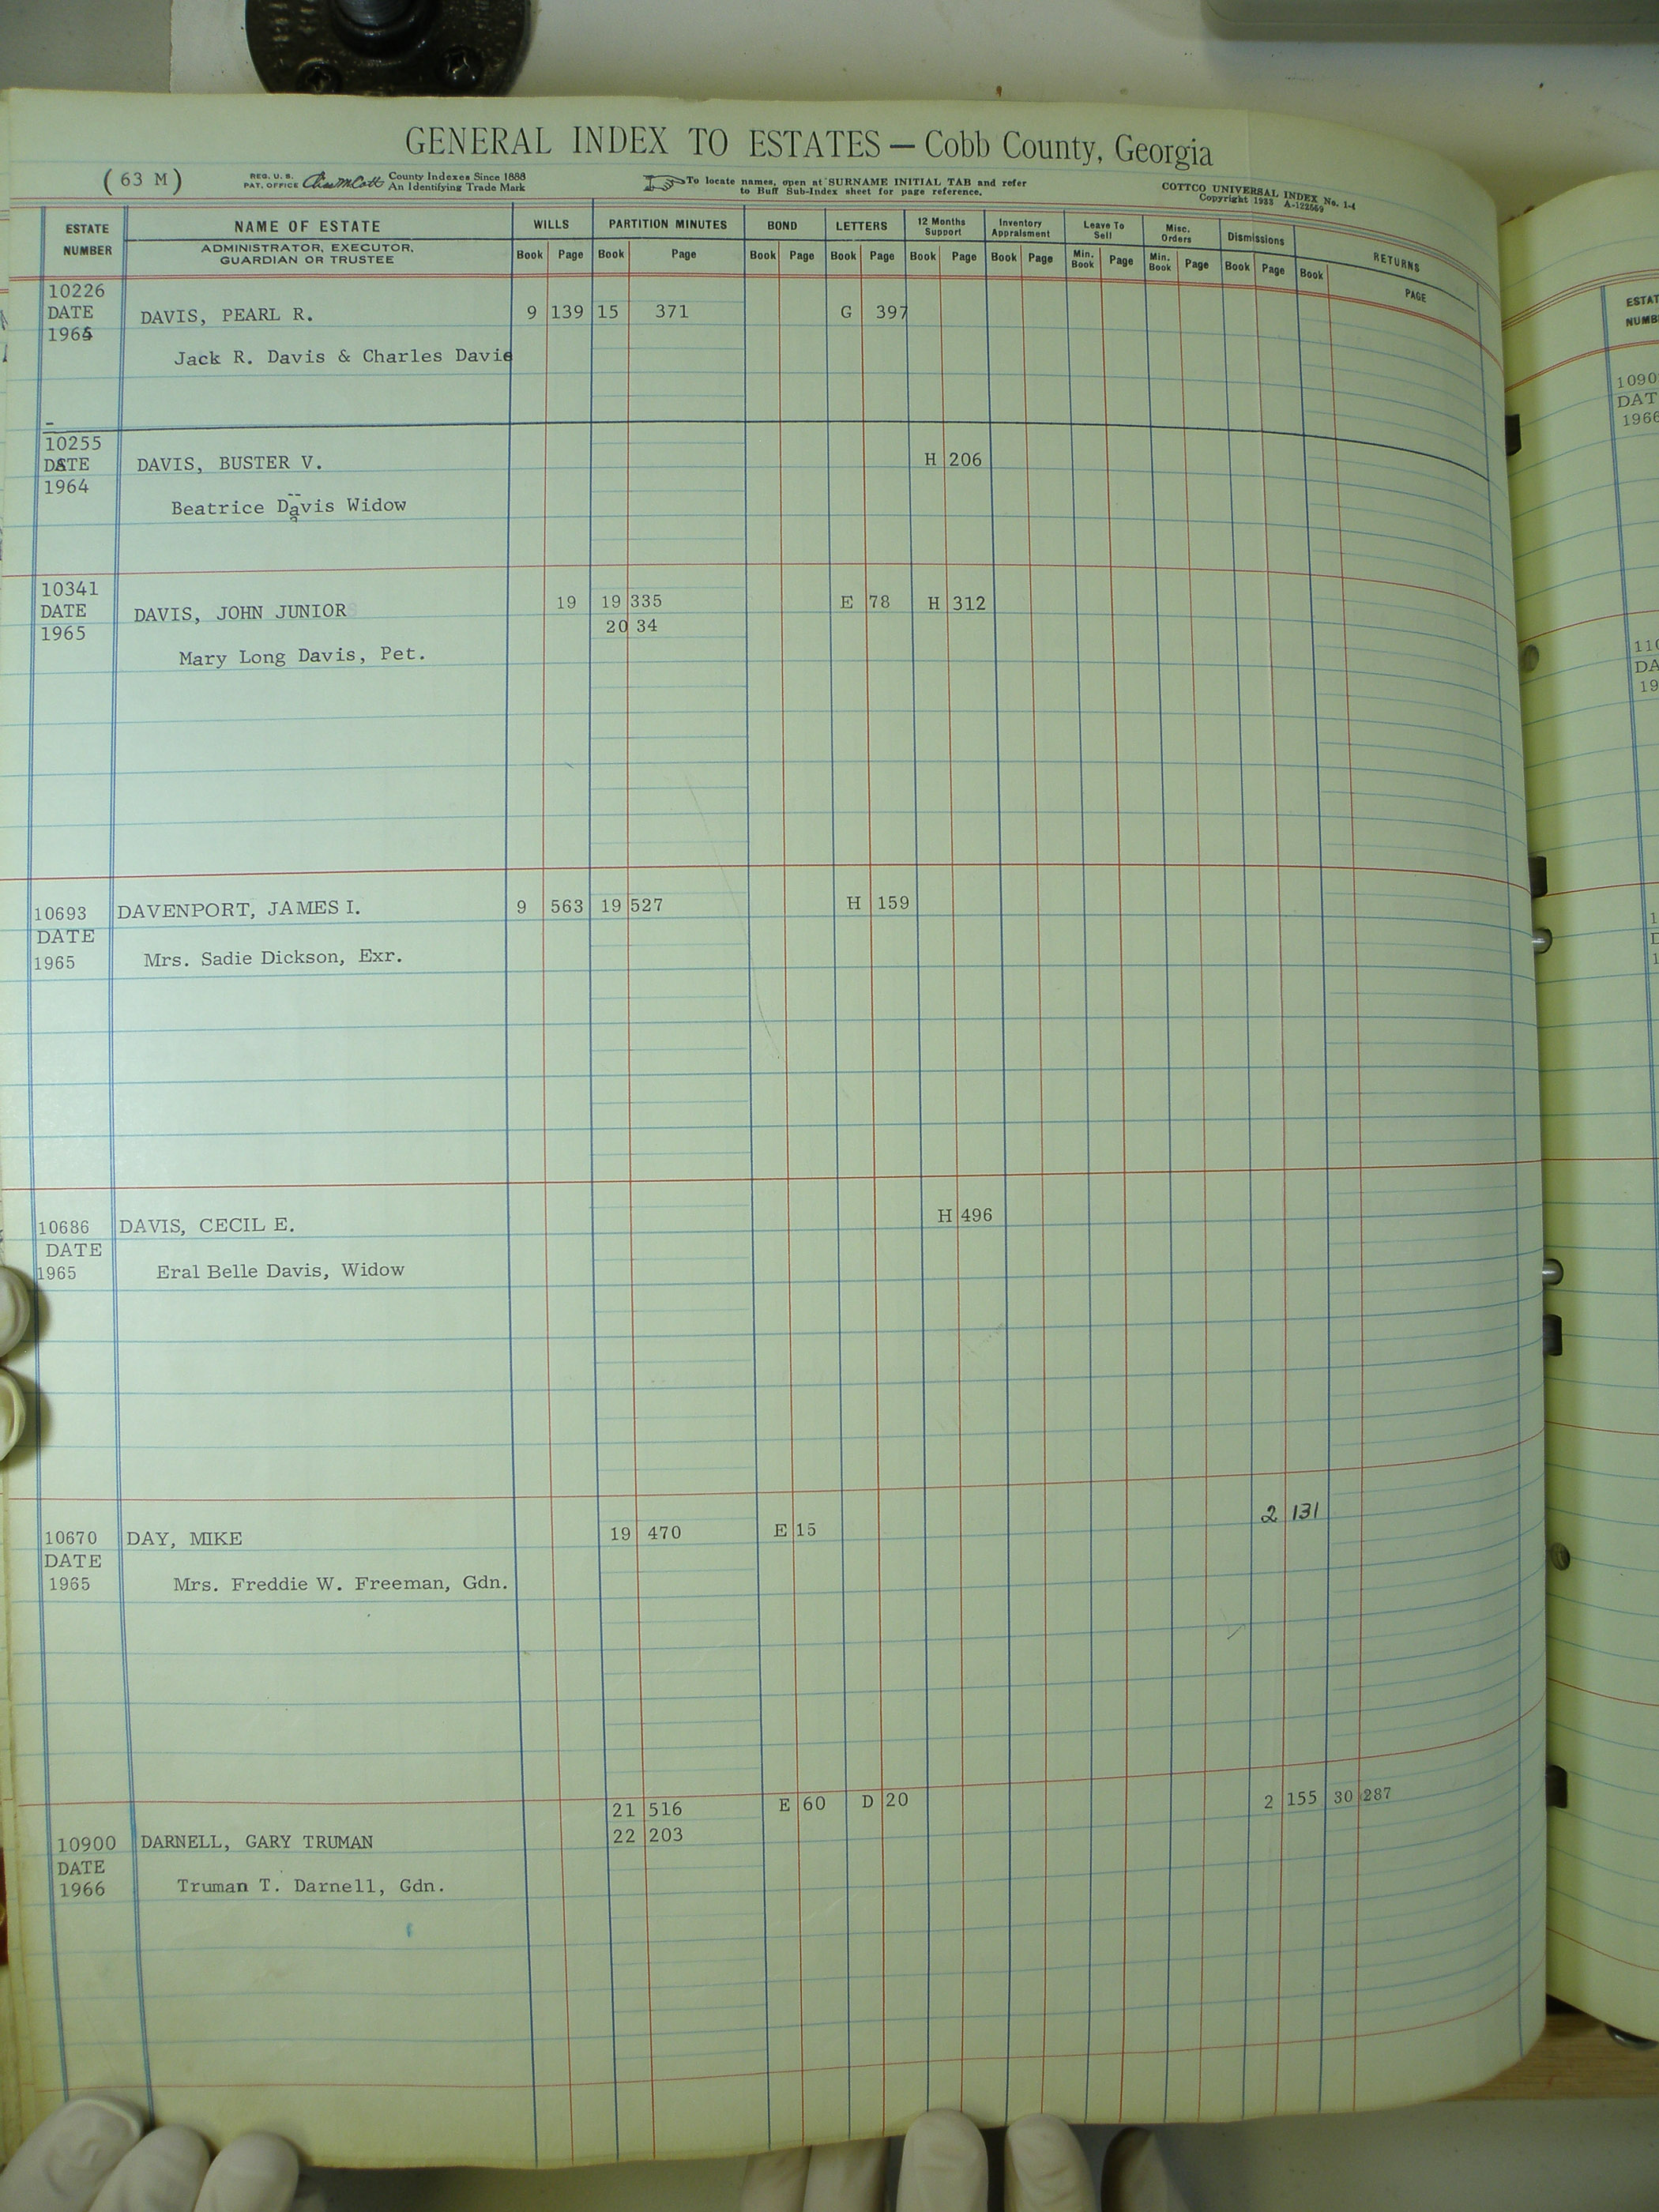 GENERAL INDEX TO ESTATES — Cobb County, Georgia
( 63 M )
REG. U. S. PAT. OFFICE
County Indexes Since 1888
An Identifying Trade Mark
To locate names, open at SURNAME INITIAL TAB and refer
to Buff Sub-Index sheet for page reference.
COTTCO UNIVERSAL INDEX No. 1-4
Copyright 1933 A-122559
ESTATE NUMBER
NAME OF ESTATE
ADMINISTRATOR, EXECUTOR,
GUARDIAN OR TRUSTEE
WILLS PARTITION MINUTES BOND LETTERS 12 Months Support Inventory Appraisment Leave To Sell Misc. Orders Dismissions RETURNS
Book Page Book Page Book Page Book Page Book Page Book Page Min. Book Page Min. Book Page Book Page Book PAGE
10226
DATE DAVIS, PEARL R. 9 139 15 371 G 397
1964
Jack R. Davis & Charles Davie
10255
DATE DAVIS, BUSTER V. H 206
1964
Beatrice Davis Widow
10341
DATE DAVIS, JOHN JUNIOR 19 19 335 E 78 H 312
1965 20 34
Mary Long Davis, Pet.
10693 DAVENPORT, JAMES I. 9 563 19 527 H 159
DATE
1965 Mrs. Sadie Dickson, Exr.
10686 DAVIS, CECIL E. H 496
DATE
1965 Eral Belle Davis, Widow
2 131
10670 DAY, MIKE 19 470 E 15
DATE
1965 Mrs. Freddie W. Freeman, Gdn.
21 516 E 60 D 20 2 155 30 287
22 203
10900 DARNELL, GARY TRUMAN
DATE
1966 Truman T. Darnell, Gdn.